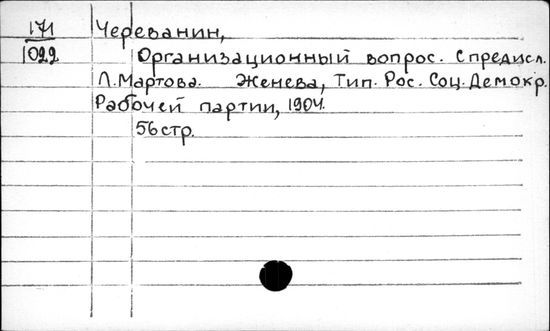 171
1022
Череванин,
Организационный вопрос. С предисл.
Л. Мартова. Женева, Тип. Рос. Соц. Демокр.
Рабочей партии, 1904.
56 стр.